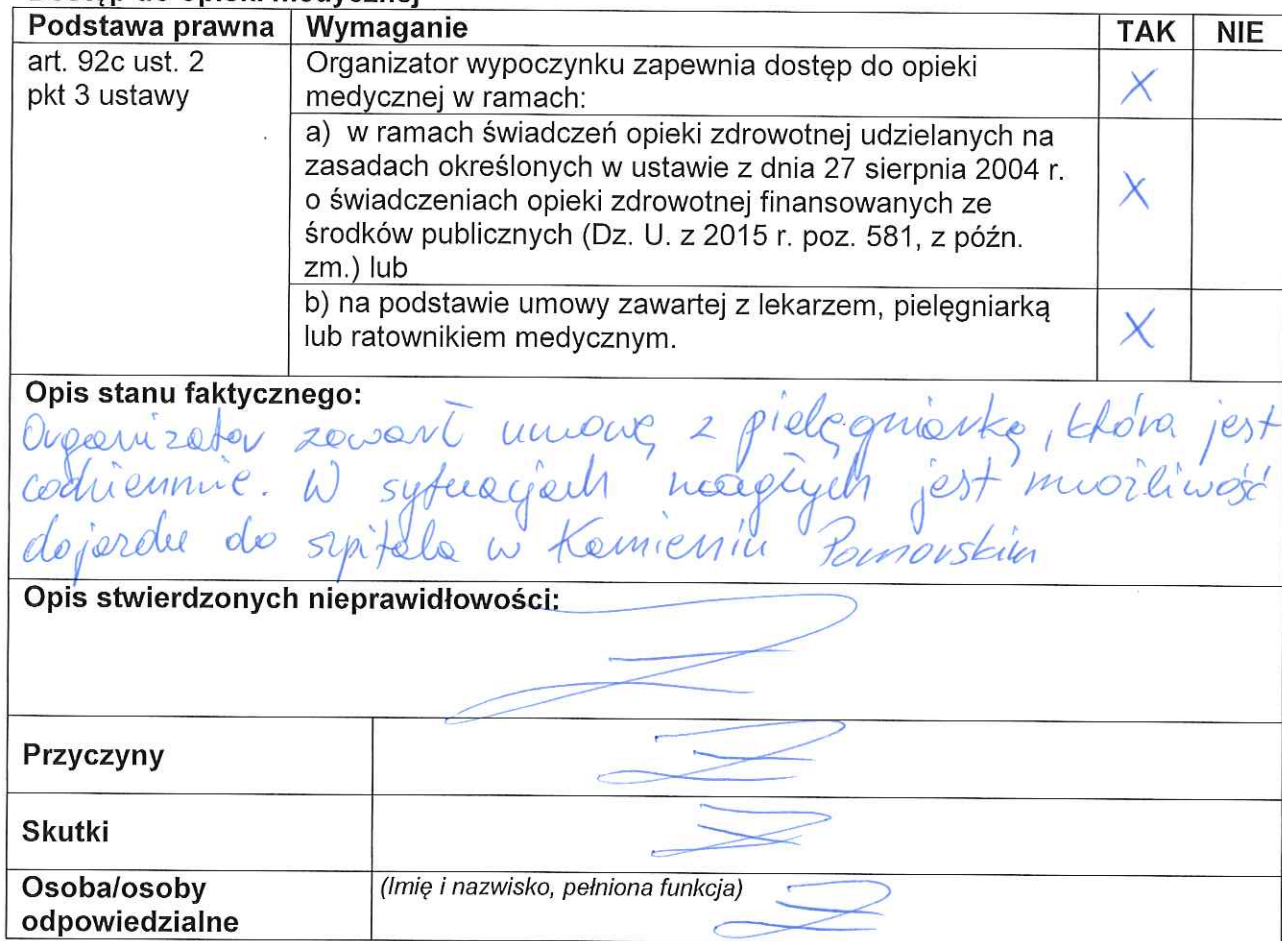 Podstawa prawna Wymaganie TAK NIE
art. 92c ust. 2
pkt 3 ustawy
Organizator wypoczynku zapewnia dostęp do opieki
medycznej w ramach:
X
a) w ramach świadczeń opieki zdrowotnej udzielanych na
zasadach określonych w ustawie z dnia 27 sierpnia 2004 r.
o świadczeniach opieki zdrowotnej finansowanych ze
środków publicznych (Dz. U. z 2015 r. poz. 581, z późn.
zm.) lub
X
b) na podstawie umowy zawartej z lekarzem, pielęgniarką
lub ratownikiem medycznym.
X
Opis stanu faktycznego:
Organizator zawarł umowę z pielęgniarką, która jest
codziennie. W sytuacjach nagłych jest możliwość
dojazdu do szpitala w Kamieniu Pomorskim
Opis stwierdzonych nieprawidłowości:
Przyczyny
Skutki
Osoba/osoby
odpowiedzialne
(Imię i nazwisko, pełniona funkcja)